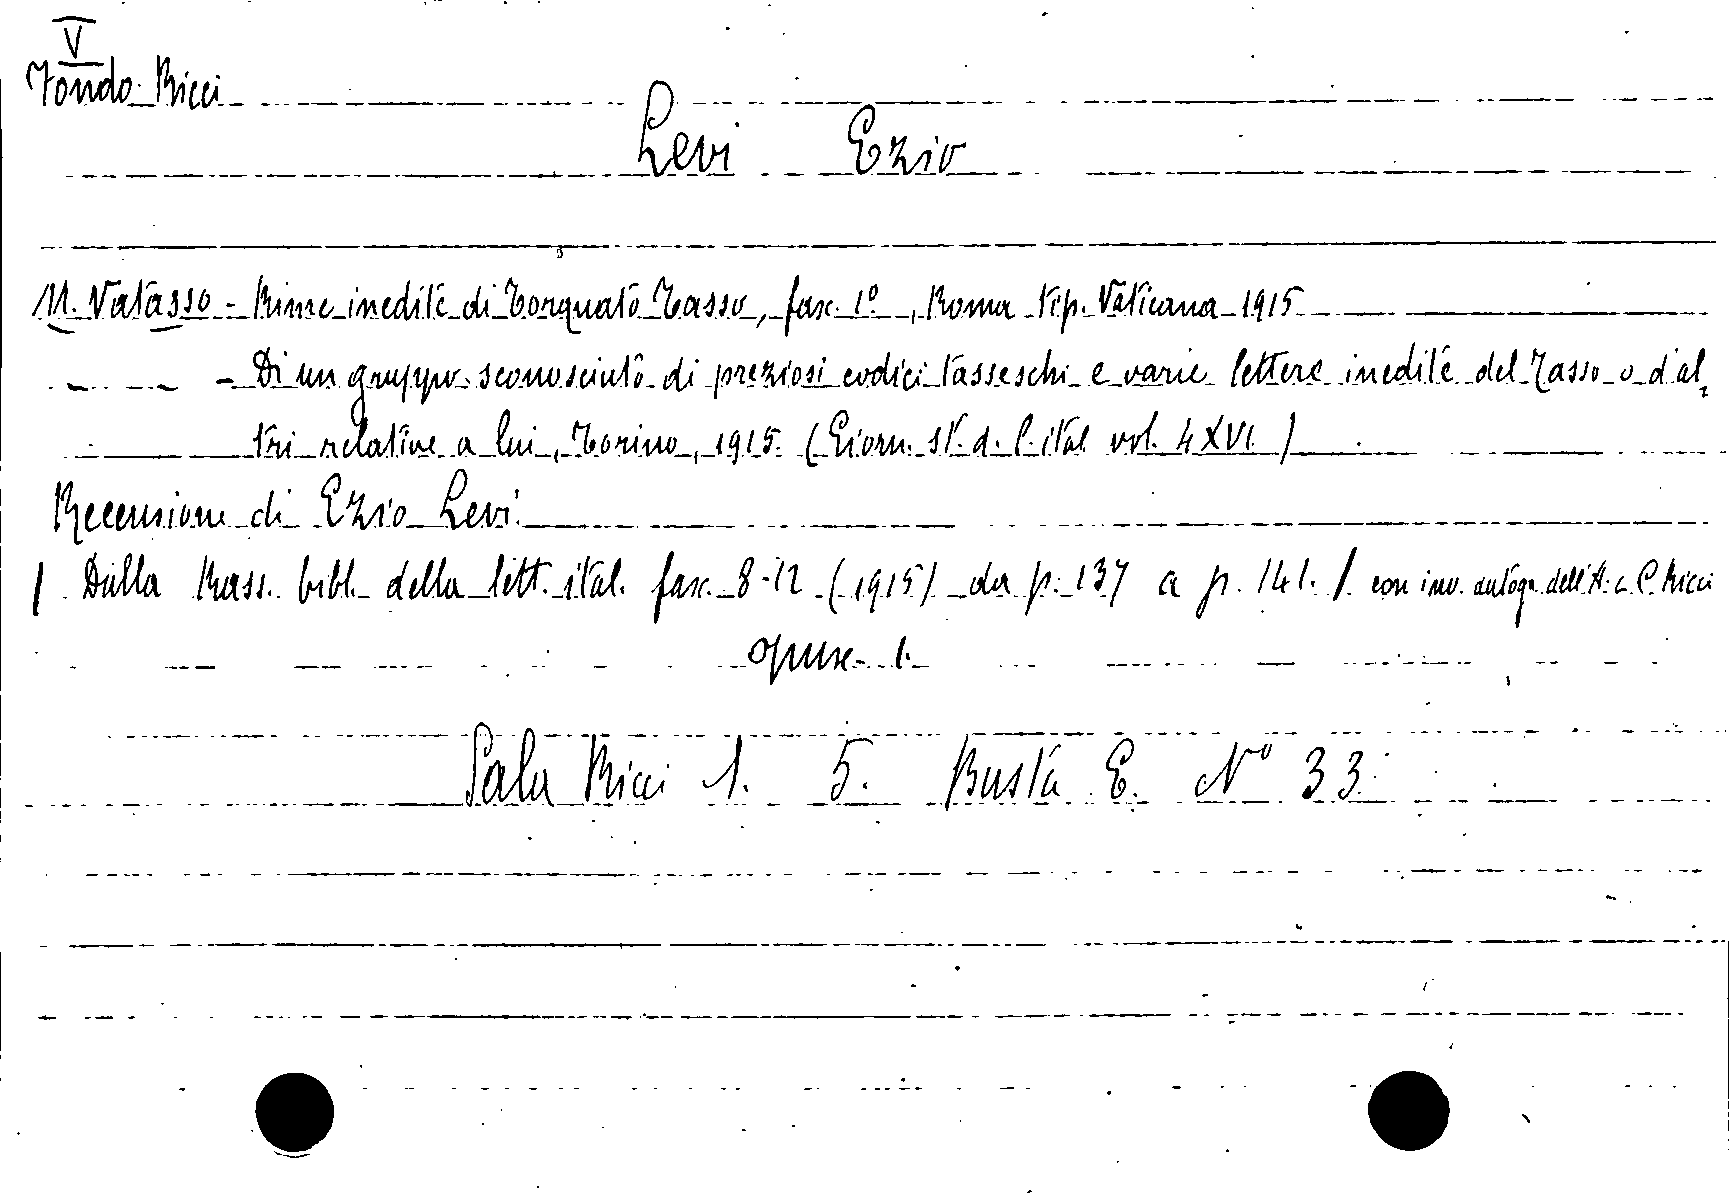 V
Fondo Ricci
Levi Ezio
M. Vatasso - Rime inedite di Torquato Tasso, fasc. 1º, Roma tip. Vaticana 1915
- Di un gruppo sconosciuto di preziosi codici tasseschi e varie lettere inedite del Tasso o d'al,
tri relative a lui, Torino, 1915. (Giorn. st. d. l. ital vol. LXVI)
Recensione di Ezio Levi.
/ Dalla Rass. bibl. della lett. ital. fasc. 8-12 (1915) da p. 137 a p. 141. / con inv. autogr. dell'A. a C. Ricci
opusc. 1.
Sala Ricci 1. 5. Busta E. Nº 33.